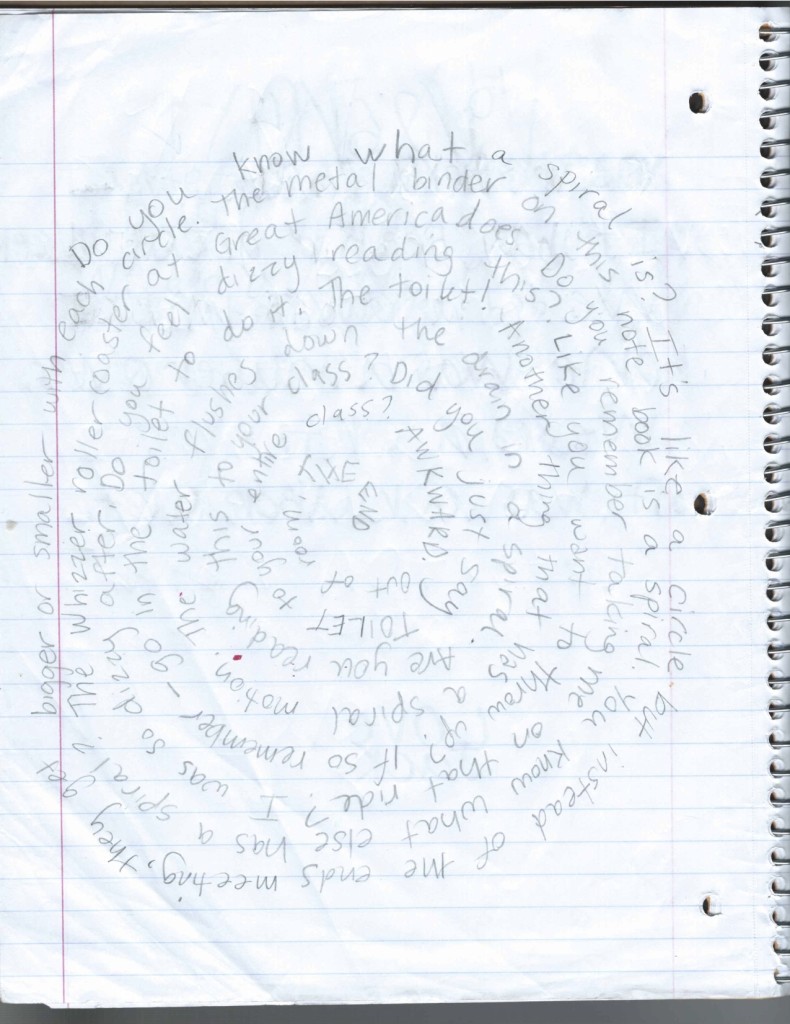 Do you know what a spiral is? It's like a circle but instead of the ends meeting, they get bigger or smaller with
each circle. The metal binder on this note book is a spiral. You know what else has a spiral? The whizzer roller coaster
at Great America does. Do you remember taking me on that ride? I was so dizzy after. Do you feel
dizzy reading this? Like you want to throw up? If so remember - go in the toilet to
do it. The toilet! Another thing that has a spiral motion. The water flushes
down the drain in a spiral. Are you reading this to your
class? Did you just say TOILET to your entire
class? AWKWARD. out of room,
END